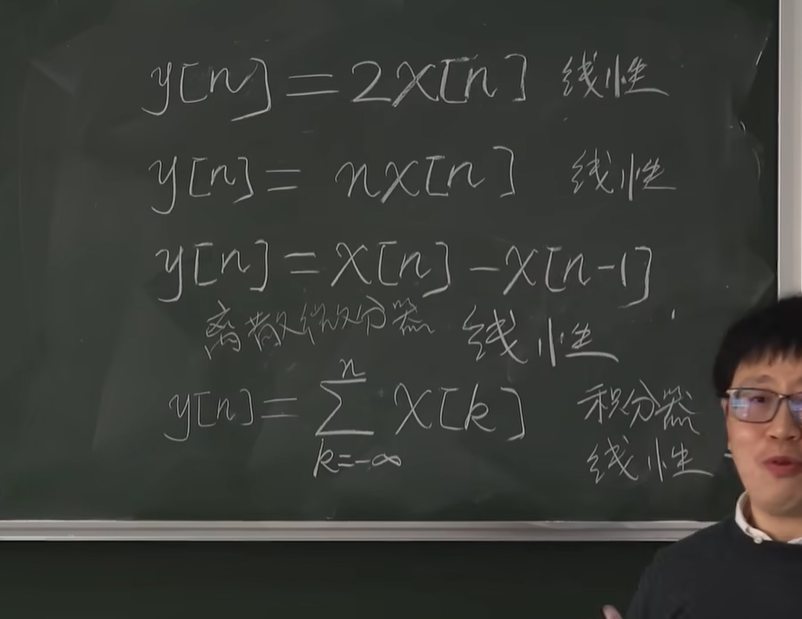 y[n] = 2x[n] 线性
y[n] = nx[n] 线性
y[n] = x[n] - x[n-1]
离散微分器 线性
y[n] = \sum_{k=-∞}^{n} x[k] 积分器
线性